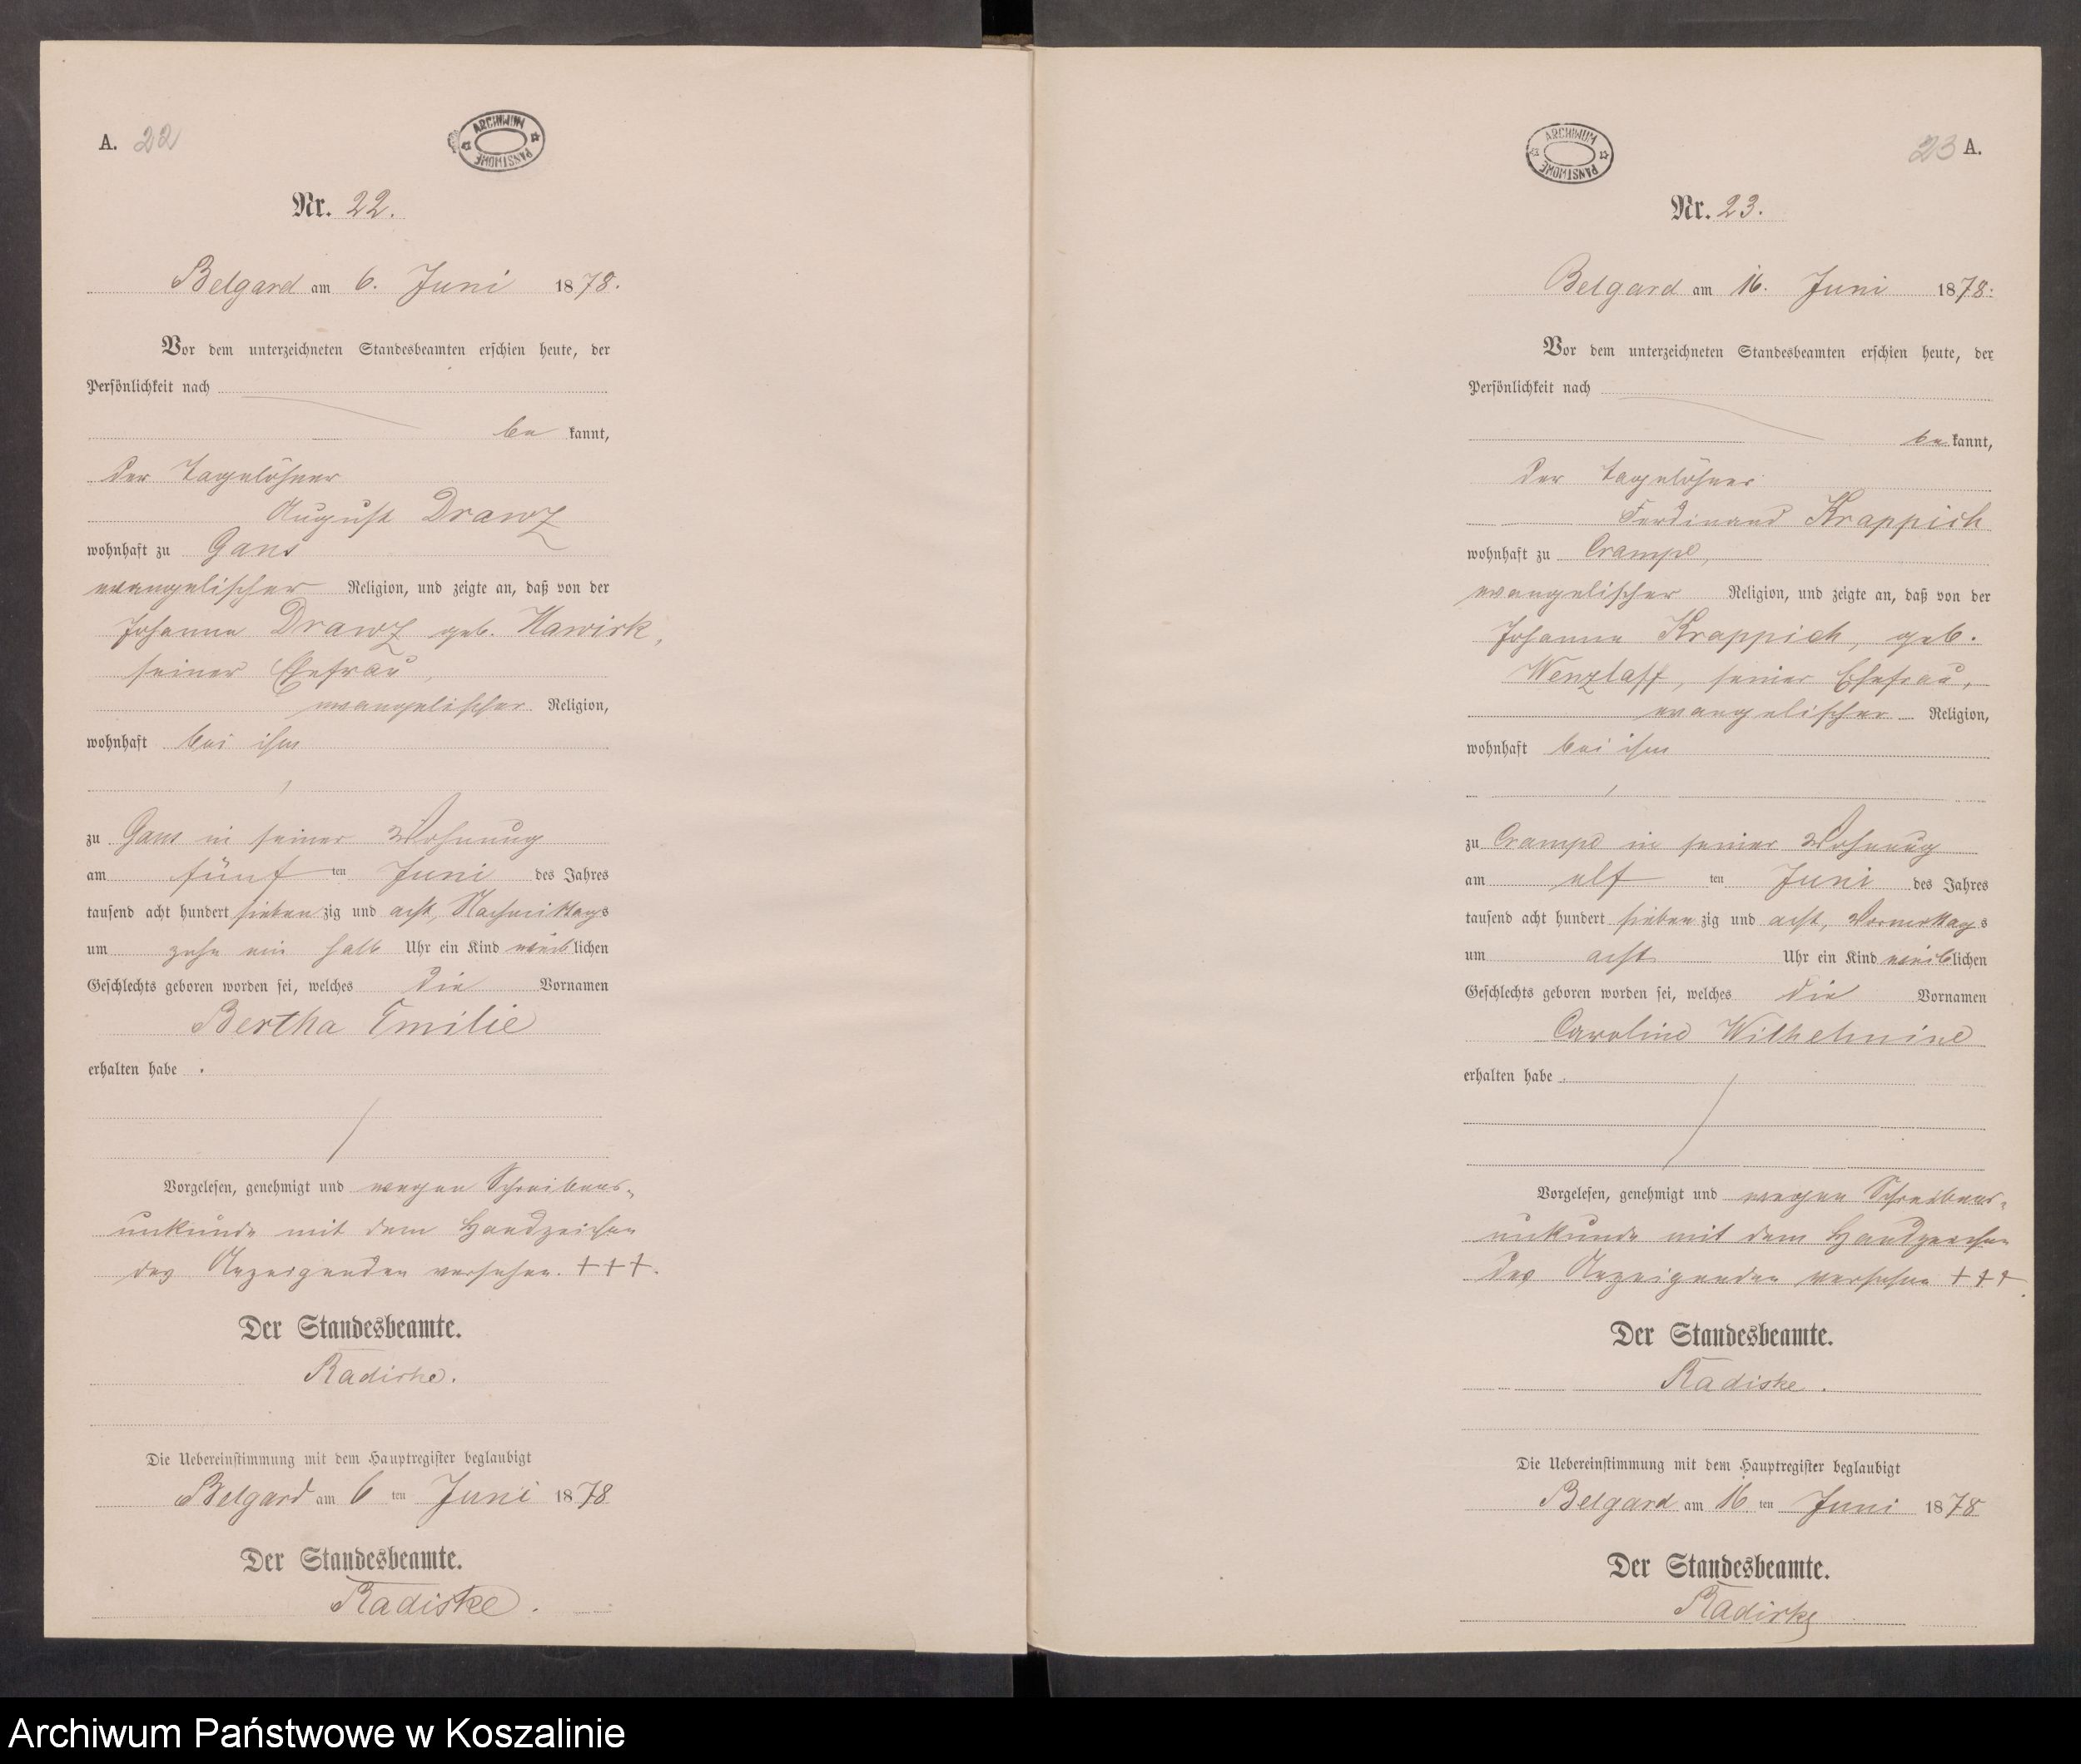 A. 22
ARCHIWUM PAŃSTWOWE
Nr. 22.
Belgard am 6. Juni 1878.
Vor dem unterzeichneten Standesbeamten erschien heute, der
Persönlichkeit nach
be kannt,
der Tagelöhner
August Drawz
wohnhaft zu Gans
evangelischer Religion, und zeigte an, daß von der
Johanne Drawz geb. Hawirk,
seiner Ehefrau,
evangelischer Religion,
wohnhaft bei ihm
zu Gans in seiner Wohnung
am fünf ten Juni des Jahres
tausend acht hundert sieben zig und acht, Nachmittags
um zehn ein halb Uhr ein Kind weiblichen
Geschlechts geboren worden sei, welches die Vornamen
Bertha Emilie
erhalten habe .
Vorgelesen, genehmigt und wegen Schreibens-
unkunde mit dem Handzeichen
des Anzeigenden versehen. +++.
Der Standesbeamte.
Radiske.
Die Uebereinstimmung mit dem Hauptregister beglaubigt
Belgard am 6 ten Juni 1878
Der Standesbeamte.
Radiske.
23 A.
ARCHIWUM PAŃSTWOWE
Nr. 23.
Belgard am 16. Juni 1878.
Vor dem unterzeichneten Standesbeamten erschien heute, der
Persönlichkeit nach
be kannt,
der Tagelöhner
Ferdinand Krappich
wohnhaft zu Crampe,
evangelischer Religion, und zeigte an, daß von der
Johanne Krappich, geb.
Wenzlaff, seiner Ehefrau,
evangelischer Religion,
wohnhaft bei ihm
zu Crampe in seiner Wohnung
am elf ten Juni des Jahres
tausend acht hundert sieben zig und acht, Vormittags
um acht Uhr ein Kind weiblichen
Geschlechts geboren worden sei, welches die Vornamen
Caroline Wilhelmine
erhalten habe .
Vorgelesen, genehmigt und wegen Schreibens-
unkunde mit dem Handzeichen
des Anzeigenden versehen +++.
Der Standesbeamte.
Radiske.
Die Uebereinstimmung mit dem Hauptregister beglaubigt
Belgard am 16 ten Juni 1878
Der Standesbeamte.
Radiske
Archiwum Państwowe w Koszalinie